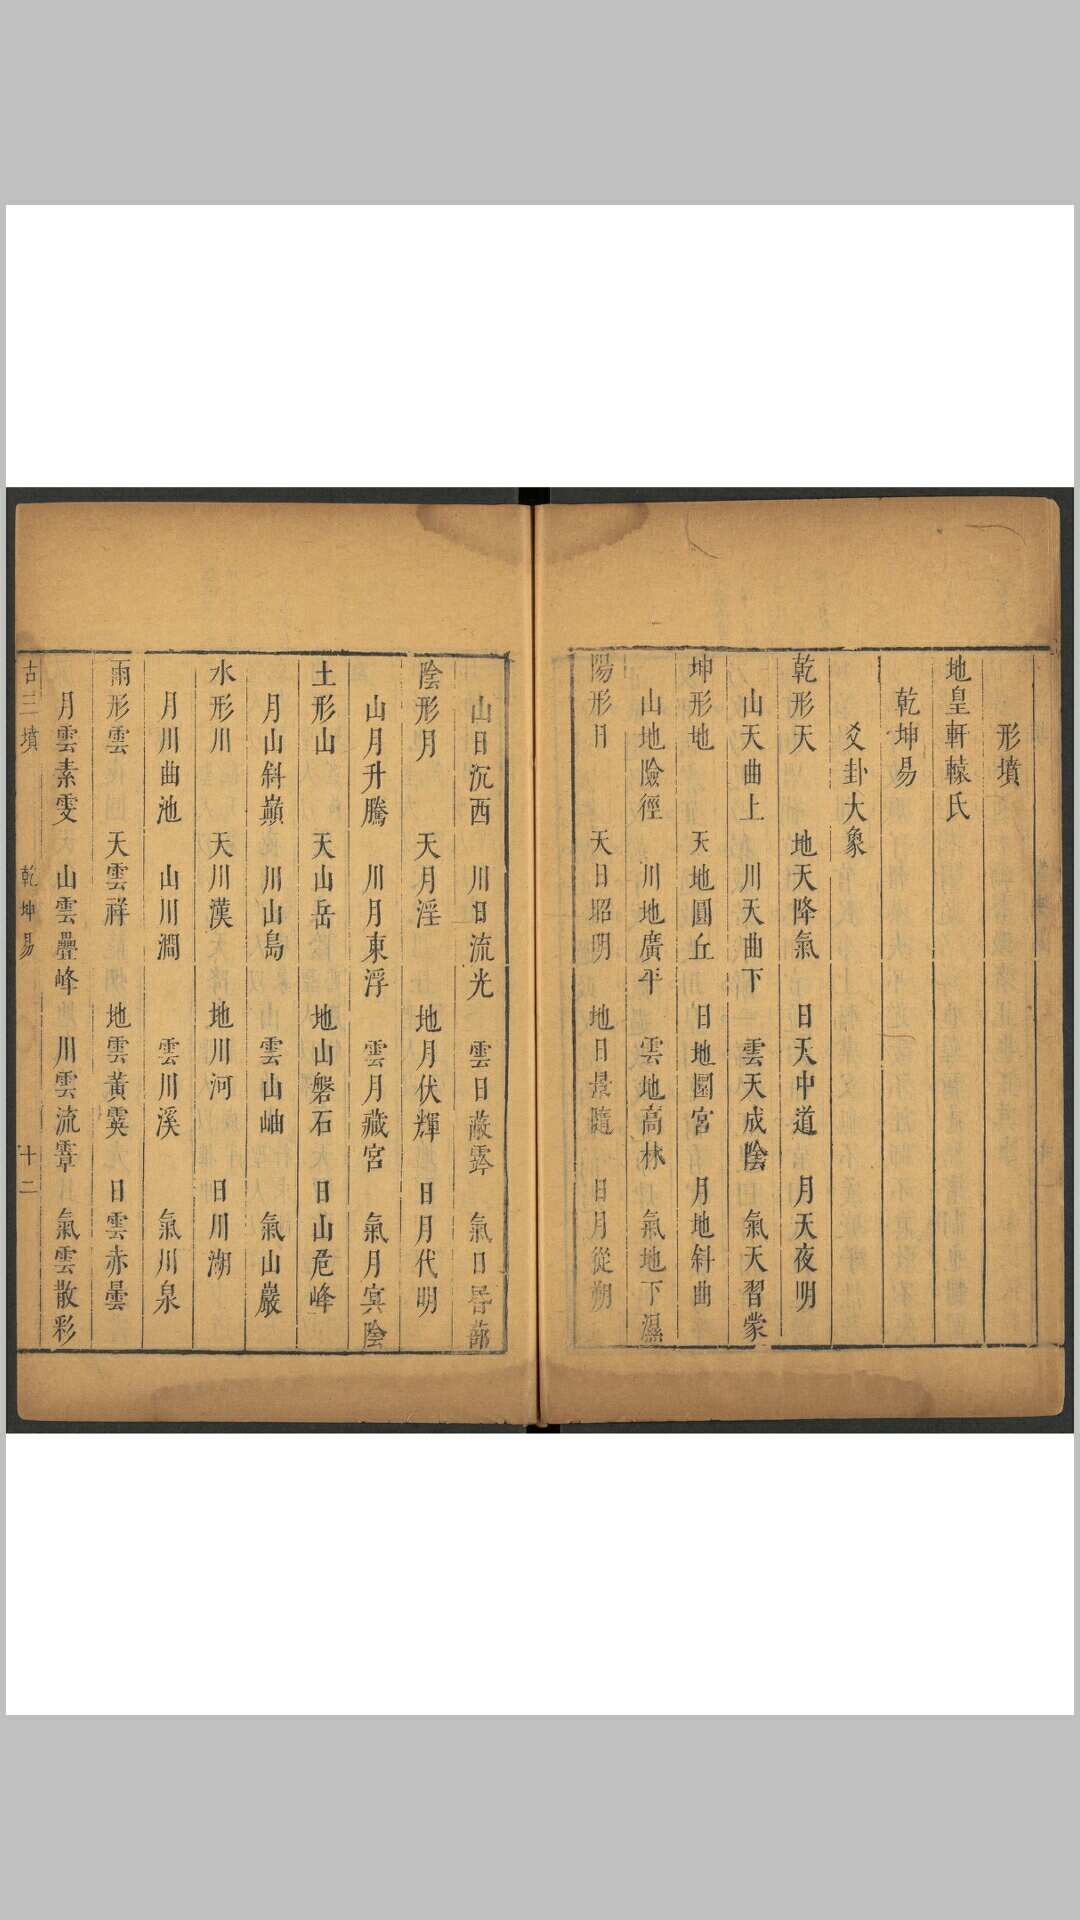 形墳
地皇軒轅氏
乾坤易
爻卦大象
乾形天 地天降氣 日天中道 月天夜明
山天曲上 川天曲下 雲天成陰 氣天習蒙
坤形地 天地圓丘 日地圜宮 月地斜曲
山地險徑 川地廣平 雲地高林 氣地下濕
陽形日 天日昭明 地日景隨 日月從朔
山日沉西 川日流光 雲日蔽霠 氣日昏蔀
陰形月 天月淫 地月伏輝 日月代明
山月升騰 川月東浮 雲月藏宮 氣月冥陰
土形山 天山岳 地山磐石 日山危峰
月山斜巔 川山島 雲山岫 氣山巖
水形川 天川漢 地川河 日川湖
月川曲池 山川澗 雲川溪 氣川泉
雨形雲 天雲祥 地雲黃霙 日雲赤曇
月雲素雯 山雲疊峰 川雲流霃 氣雲散彩
古三墳 乾坤易 十二